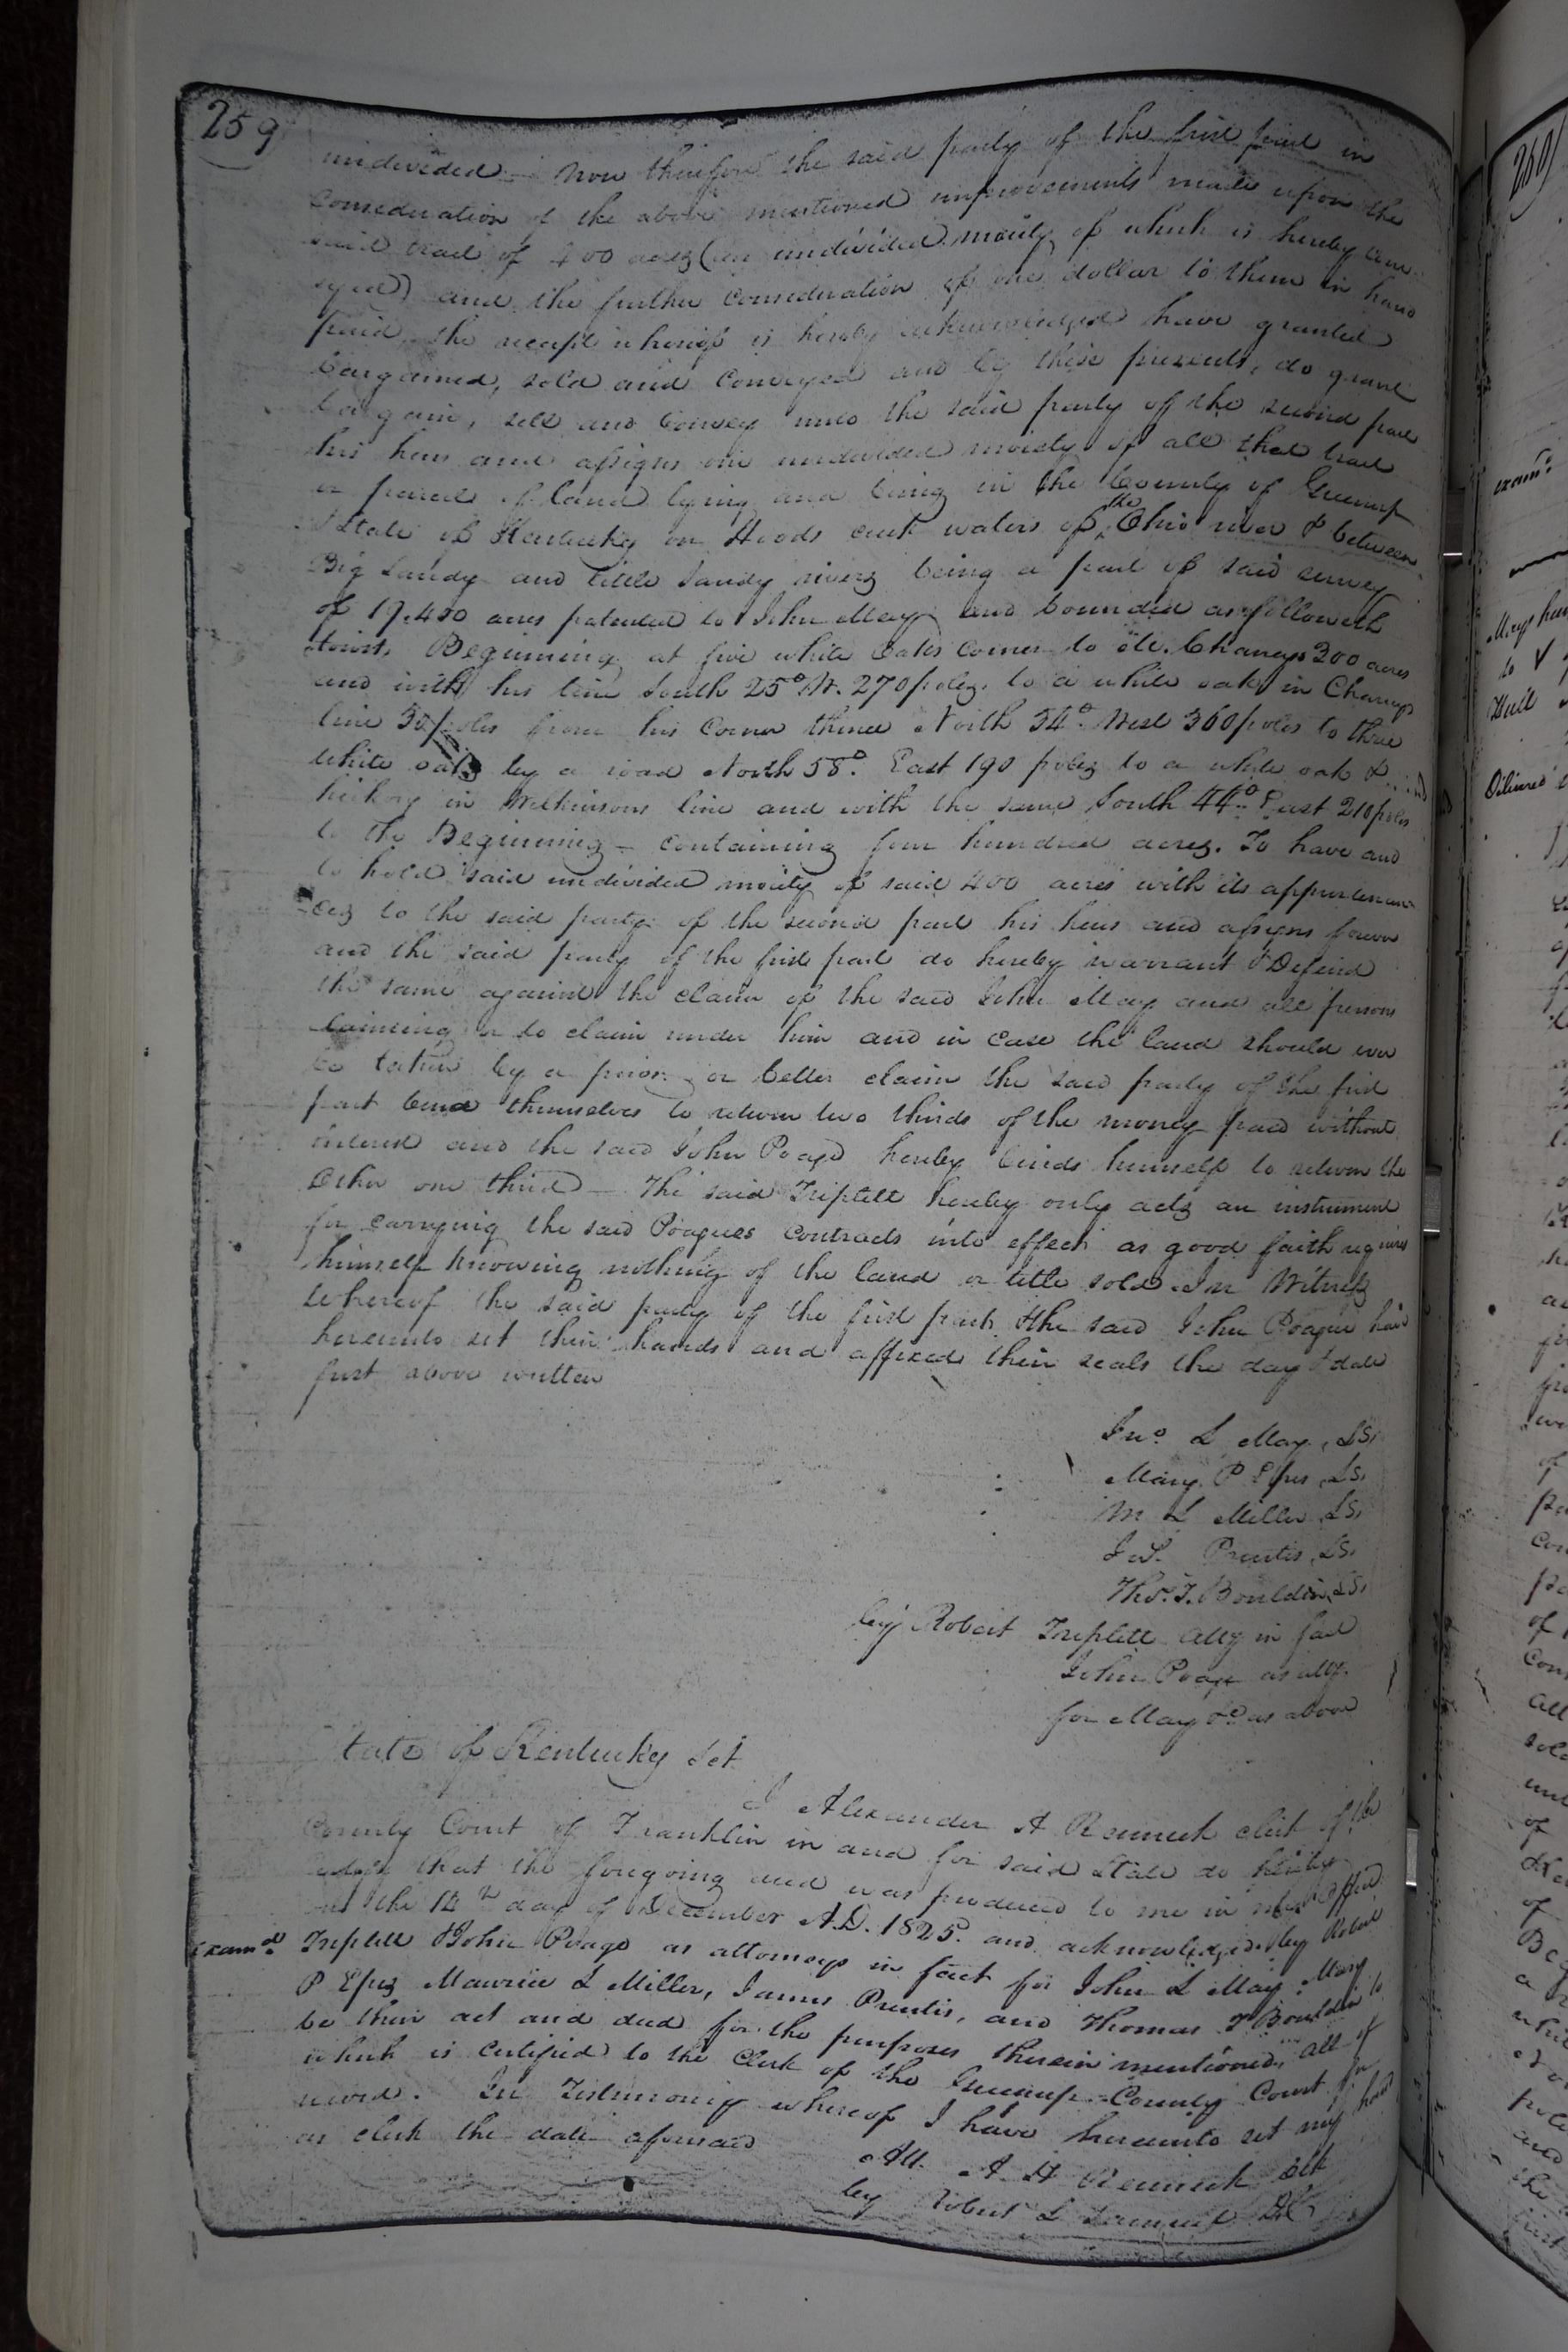 259
undivided – Now therefore the said party of the first part in
Consideration of the above mentioned improvements made upon the
said tract of 400 acres (an undivided moity of which is hereby con-
veyed) and the further Consideration of one dollar to them in hand
paid, the receipt whereof is hereby acknowledged have granted
bargained, sold and Conveyed and by these presents, do grant
bargain, sell and Convey unto the said party of the second part
his heirs and assigns one undivided moiety of all that tract
or parcel of land lying and being in the County of Greenup
State of Kentucky on Hoods creek waters of the Ohio river & between
Big Sandy and Little Sandy rivers being a part of said survey
of 19.400 acres patented to John May and bounded as followeth
towit, Beginning at five white Oaks corner to 300 acres
and with his line South 25° W. 270 poles, to a white oak in
line 30 poles from his Corner thence North 54° West 360 poles to three
white oaks by a road North 58° East 190 poles to a white oak &
hickory in Wilkinsons line and with the same South 44° East 210 poles
to the Beginning – containing four hundred acres. To have and
to hold said undivided moity of said 400 acres with its appurtenan-
ces to the said party of the second part his heirs and assigns forever
and the said party of the first part do hereby warrant & Defend
the same against the claim of the said John May and all persons
claiming or to claim under him and in case the land should ever
be taken by a prior or better claim the said party of the first
part bend themselves to return two thirds of the money paid without
interest and the said John Poage hereby binds himself to return the
other one third – The said Triplett hereby only acts an instrument
for carrying the said Poagues Contracts into effect as good faith requires
himself knowing nothing of the land or title sold. In Witness
whereof the said party of the first part & the said John Poague have
hereunto set their hands and affixed their seals the day & date
first above written
Jno. L May, LS,
Mary P Epes LS,
M L Miller LS,
Js. Prentis, LS,
Thos. T. Bouldin, LS,
by Robert Triplett Atty in fact
John Poage as atty.
for May &c as above
State of Kentucky Sct
I Alexander H Rennick clerk of the
County Court of Franklin in and for said State do hereby
certify that the foregoing deed was produced to me in my office
on the day of December A.D. 1825. and acknowledged by Robert
Examd. Triplett & John Poage as attorneys in fact for John L May, Mary
P Epes Maurice L Miller, James Prentis, and Thomas T Bouldin to
be their act and deed for the purposes therein mentioned, all of
which is Certified to the Clerk of the Greenup County Court for
record. In Testimony whereof I have hereunto set my hand
as clerk the date aforesaid
Att. A H Rennick clk
by Robert L DC